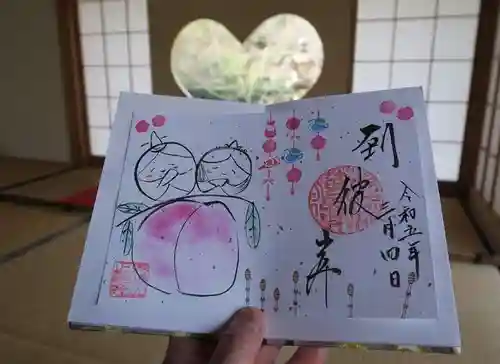 令和五年
三月四日
到彼岸